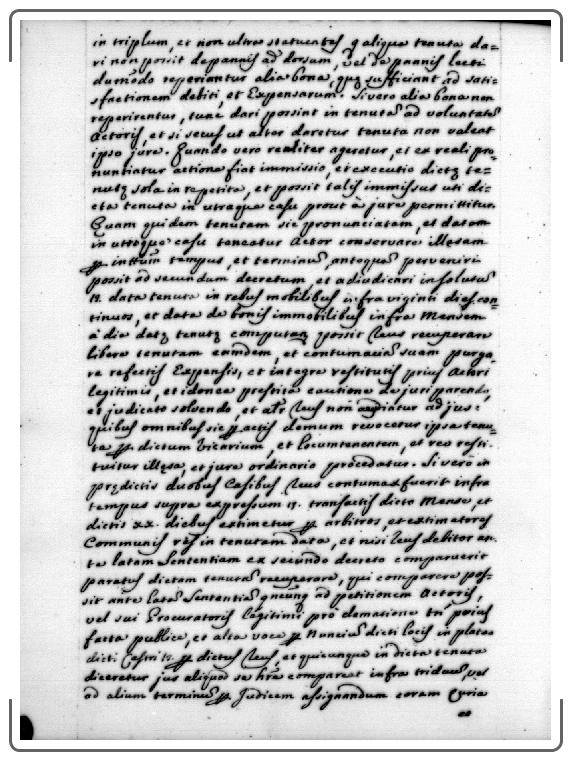 in triplum, et non ultra statuentes q aliqua tenuta da=
ri non possit de pannis ad dorsum, vel de pannis lecti
dumodo reperiantur alia bona, quę sufficiant ad satis=
sfactionem debiti, et Expensarum. Si vero alia bona non
reperirentur, tunc dari possint in tenuta ad voluntate
Actoris, et si secus ut altor daretur tenuta non valeat
ipso jure. Quando vero realiter ageretur, et ex reali pro=
nuntiatur actione fiat immissio, et executio dictę te=
nutę sola in re petita, et possit talis immissus uti di=
cta tenuta in utraque casu prout à jure permittitur.
Quam quidem tenutam sic pronunciatam, et datam
in utroque casu teneatur Actor conservare illesam
tempus, et terminu, antoque perveniri
possit ad secundum decretum, et adiudicari insolutu
data tenuta in rebus mobilibus infra viginti dies con=
tinuos, et data de bonis immobilibus infra Mensem
à die datę tenutę computan possit Reus recuperare
libere tenutam eamdem, et contumaciam suam purga=
re refectis Expensis, et integre restitutis prius Actori
legitimis, et idonea prestita cautione de juri parendo,
et judicato solvendo, et alr Reus non audiatur ad jus:
quibus omnibus sic actis demum revocetur ipsa tenu=
ta dictum Vicarium, et Locumtenentem, et reo resti=
tuitur illęsa, et jure ordinario procedatur. Si vero in
prędictis duobus Casibus Reus contumax fuerit infra
tempus supra expressum transactis dicto Mense, et
dictis xx. diebus extimetur arbitros, et extimatores
Communis res in tenutam data, et nisi Reus debitor an=
te latam Sententiam ex secundo decreto comparuerit
paratus dictam tenuta recuperare, qui comparere pos=
sit ante lata Sententia ad petitionem Actoris,
vel sui Procuratoris legitimi pro clamatione tn prius
facta publice, et alta voce Nuncium dicti locis in platea
dicti Castri dictus Reus, et quicunque in dicta tenuta
diceretur jus aliquod se hre compareat infra triduu, vel
ad alium terminu Judicem assignandum coram Curia